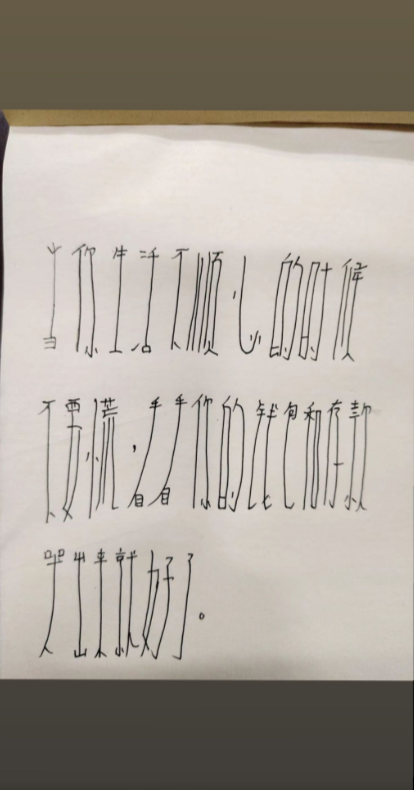 当你生活不顺心的时候
不要慌,看看你的钱包和存款
哭出来就好了。